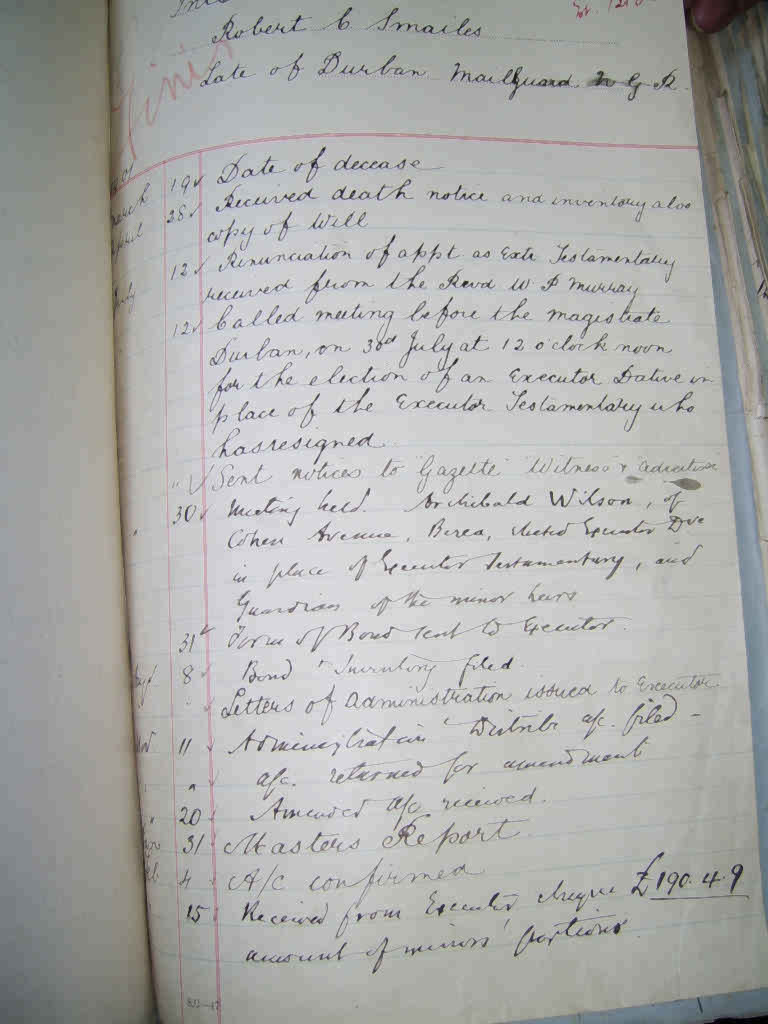 Robert C Smailes
Late of Durban Mail Guard N G R.
Minor
March 19 Date of decease
April 28 Received death notice and inventory also
copy of Will
July 12 Renunciation of appt as Extr Testamentary
received from the Revd W P Murray
12 Called meeting before the magistrate
Durban, on 30d July at 12 o'clock noon
for the election of an Executor Dative in
place of the Executor Testamentary who
has resigned.
" Sent notices to Gazette Witness &
" 30 Meeting held. Archibald Wilson, of
Cohen Avenue, Berea, elected Executor Dve
in place of Executor Testamentary, and
Guardian of the minor heirs
31 Form of Bond sent to Executor.
Augt 8 Bond & Inventory filed.
" Letters of Administration issued to Executor
Nov 11 Administration & Distribn a/c. filed -
" a/c. returned for amendment
" 20 Amended a/c received.
31 Masters Report.
Feb. 4 A/c confirmed
15 Received from Executor cheque £190.4.9
amount of minors' portions.